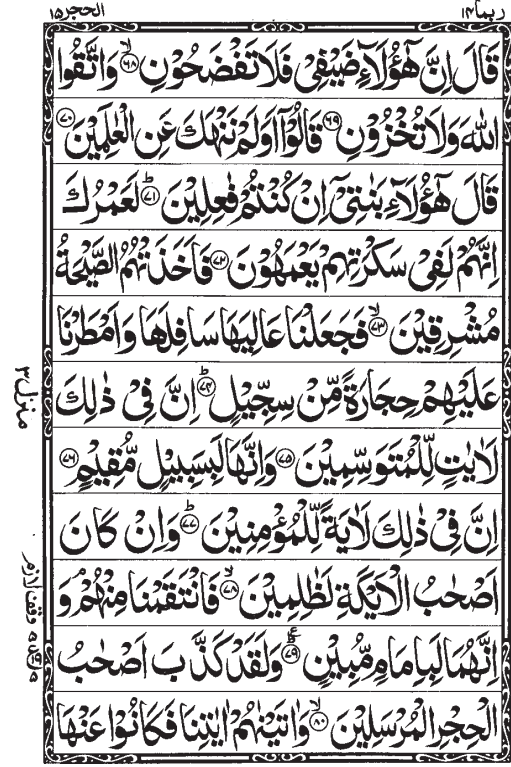 ربما ١٤ الحجر ١٥
قَالَ اِنَّ هٰٓؤُلَآءِ ضَيْفِىْ فَلَا تَفْضَحُوْنِ ۙ﴿۶۸﴾ وَاتَّقُوا
اللّٰهَ وَلَا تُخْزُوْنِ ﴿۶۹﴾ قَالُوْٓا اَوَلَمْ نَنْهَكَ عَنِ الْعٰلَمِيْنَ ﴿۷۰﴾
قَالَ هٰٓؤُلَآءِ بَنٰتِىْٓ اِنْ كُنْتُمْ فٰعِلِيْنَ ؕ﴿۷۱﴾ لَعَمْرُكَ
اِنَّهُمْ لَفِىْ سَكْرَتِهِمْ يَعْمَهُوْنَ ﴿۷۲﴾ فَاَخَذَتْهُمُ الصَّيْحَةُ
مُشْرِقِيْنَ ۙ﴿۷۳﴾ فَجَعَلْنَا عَالِيَهَا سَافِلَهَا وَاَمْطَرْنَا
عَلَيْهِمْ حِجَارَةً مِّنْ سِجِّيْلٍ ؕ﴿۷۴﴾ اِنَّ فِىْ ذٰلِكَ
لَاٰيٰتٍ لِّلْمُتَوَسِّمِيْنَ ﴿۷۵﴾ وَاِنَّهَا لَبِسَبِيْلٍ مُّقِيْمٍ ﴿۷۶﴾
اِنَّ فِىْ ذٰلِكَ لَاٰيَةً لِّلْمُؤْمِنِيْنَ ؕ﴿۷۷﴾ وَاِنْ كَانَ
اَصْحٰبُ الْاَيْكَةِ لَظٰلِمِيْنَ ۙ﴿۷۸﴾ فَانْتَقَمْنَا مِنْهُمْ ۘ وَ
اِنَّهُمَا لَبِاِمَامٍ مُّبِيْنٍ ؕ﴿۷۹﴾ وَلَقَدْ كَذَّبَ اَصْحٰبُ
الْحِجْرِ الْمُرْسَلِيْنَ ۙ﴿۸۰﴾ وَاٰتَيْنٰهُمْ اٰيٰتِنَا فَكَانُوْا عَنْهَا
منزل ۳
وقف لازم